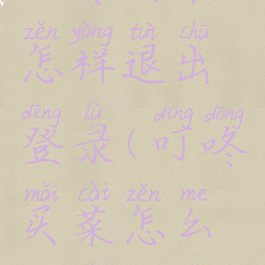 zěn yàng tuì chū
怎样退出
dēng lù dīng dōng
登录(叮咚
mǎi cài zěn me
买菜怎么